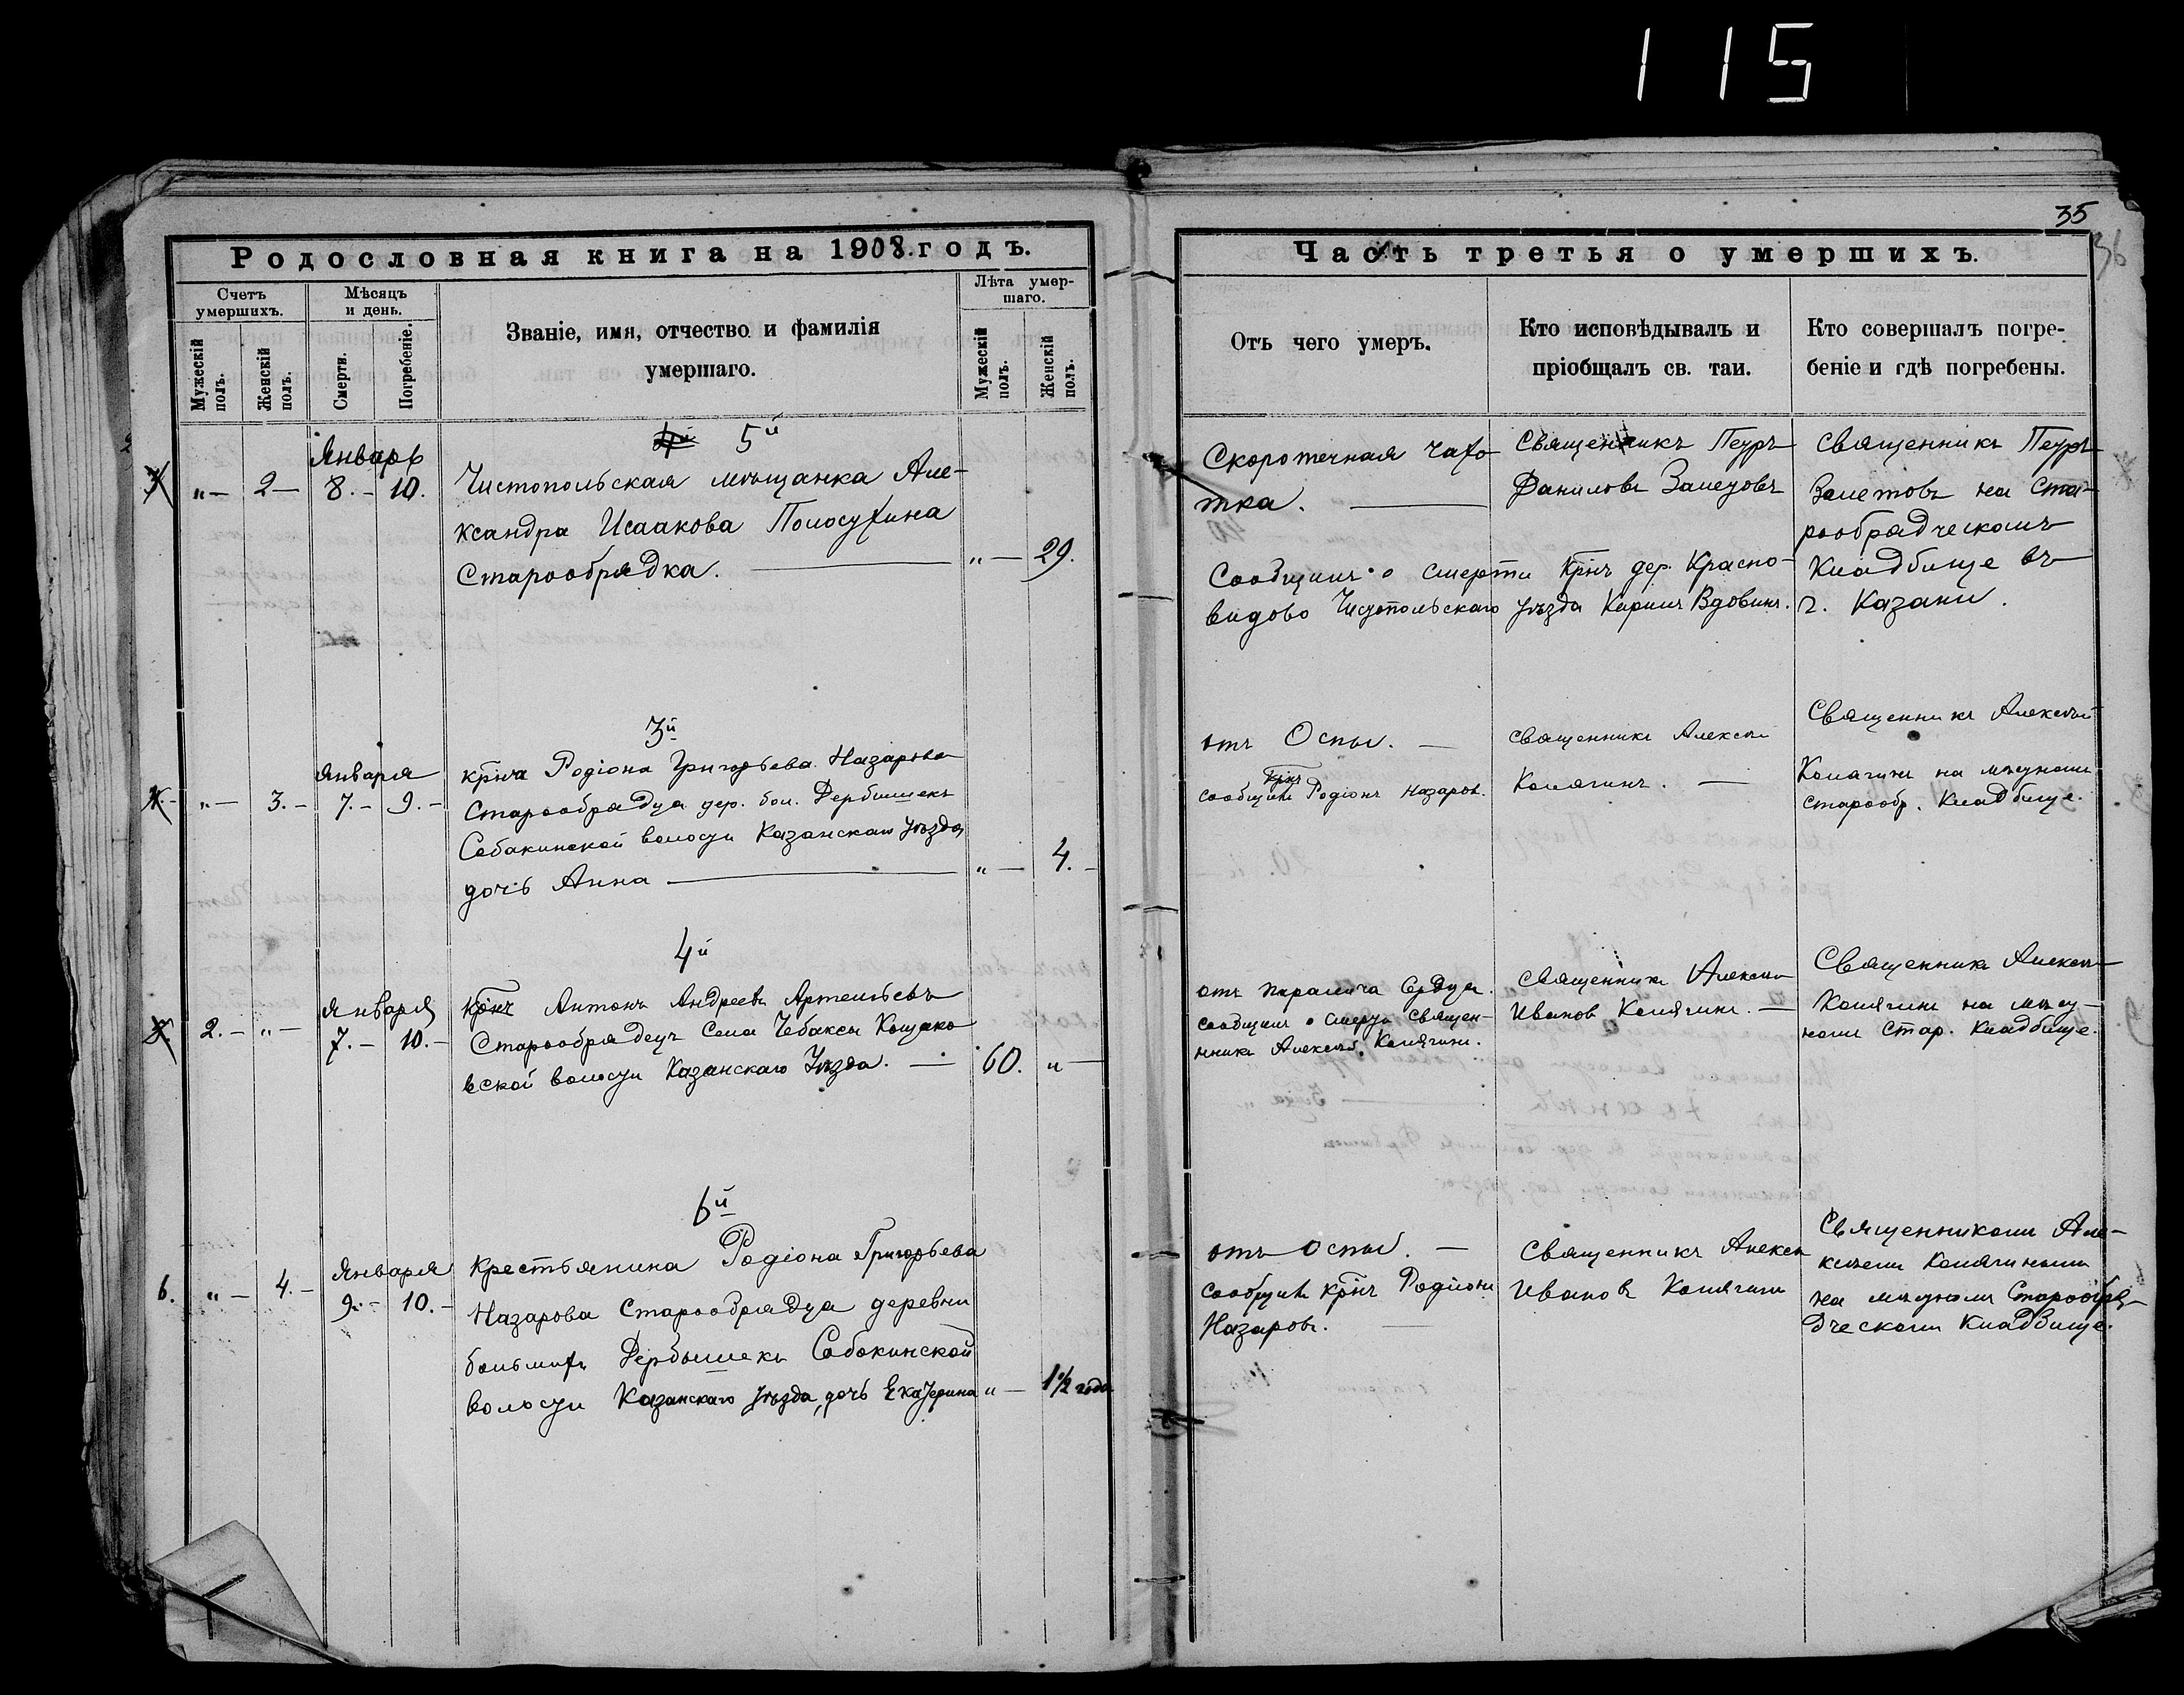 115
35
36
Родословная книга на 1908 годъ.
Счетъ умершихъ.
Мужескій полъ.
Женскій полъ.
Мѣсяцъ и день.
Смерти.
Погребеніе.
Званіе, имя, отчество и фамилія
умершаго.
Лѣта умершаго.
Мужескій полъ.
Женскій полъ.
Часть третья о умершихъ.
Отъ чего умеръ.
Кто исповѣдывалъ и
пріобщалъ св. таи.
Кто совершалъ погре-
беніе и гдѣ погребены.
5й
Январь
„ — 2 — 8. — 10.
Чистопольская мѣщанка Але-
ксандра Исаакова Полосухина
Старообрядка. „ — 29.
Скоротечная чахо-
тка.
Сообщилъ о смерти Крнъ дер. Красно-
видово Чистопольскаго уѣзда Кирилъ Вдовинъ.
Священникъ Петръ
Даниловъ Залетовъ
Священникъ Петръ
Залетовъ на Ста-
рообрядческомъ
Кладбище въ
г. Казани.
3й
Января
„ — 3. — 7. — 9. —
крна Родіона Григорьева Назарова
Старообрядца дер. бол. Дербышекъ
Собакинской волости Казанскаго уѣзда
дочь Анна „ — 4. —
отъ Оспы. —
крнъ
сообщилъ Родіонъ Назаров.
Священникъ Алексѣй
Колягинъ. —
Священникъ Алексѣй
Колягинъ на мѣстномъ
старообр. Кладбище.
4й
Января
2. — „ — 7. — 10. —
Крнъ Антонъ Андреевъ Артемьевъ
Старообрядецъ Села Чебаксы Кощако
вской волости Казанскаго Уѣзда. — 60. „ —
отъ паралича Сердца.
сообщилъ о смерти Священ-
никъ Алексѣй Колягинъ.
Священникъ Алексѣй
Ивановъ Колягинъ. —
Священникъ Алексѣй
Колягинъ на мѣст-
номъ Стар. Кладбище.
6й
Января
6. „ — 4. — 9. — 10. —
Крестьянина Родіона Григорьева
Назарова Старообрядца деревни
большихъ Дербышекъ Собакинской
волости Казанскаго уѣзда, дочь Екатерина „ — 1½ года
отъ Оспы. —
сообщилъ крнъ Родіонъ
Назаровъ.
Священникъ Алексѣй
Ивановъ Колягинъ
Священникомъ Але-
ксѣемъ Колягинымъ
на мѣстномъ Старообря-
дческомъ Кладбище.